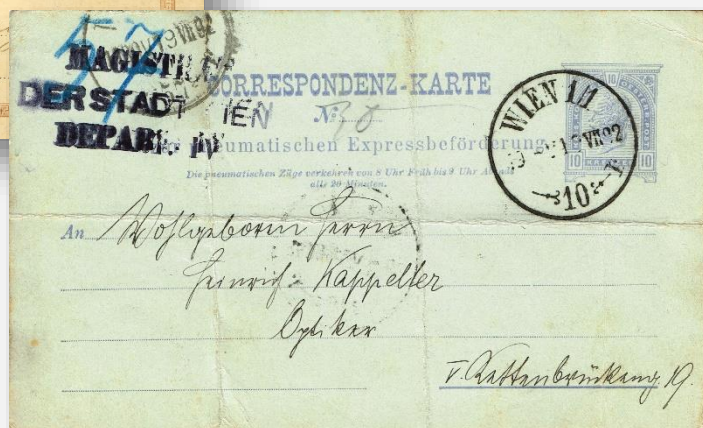 57
MAGISTR
DER STADT WIEN
DEPART. IV
CORRESPONDENZ-KARTE
No 30
pneumatischen Expressbeförderung
Die pneumatischen Züge verkehren von 8 Uhr Früh bis 9 Uhr Abends
alle 20 Minuten.
WIEN 1/1
VII 92
10
10 10
10 10
An Wohlgeborn Herrn
Heinrich Kappeller
Optiker
V. Kettenbrückeng. 19.